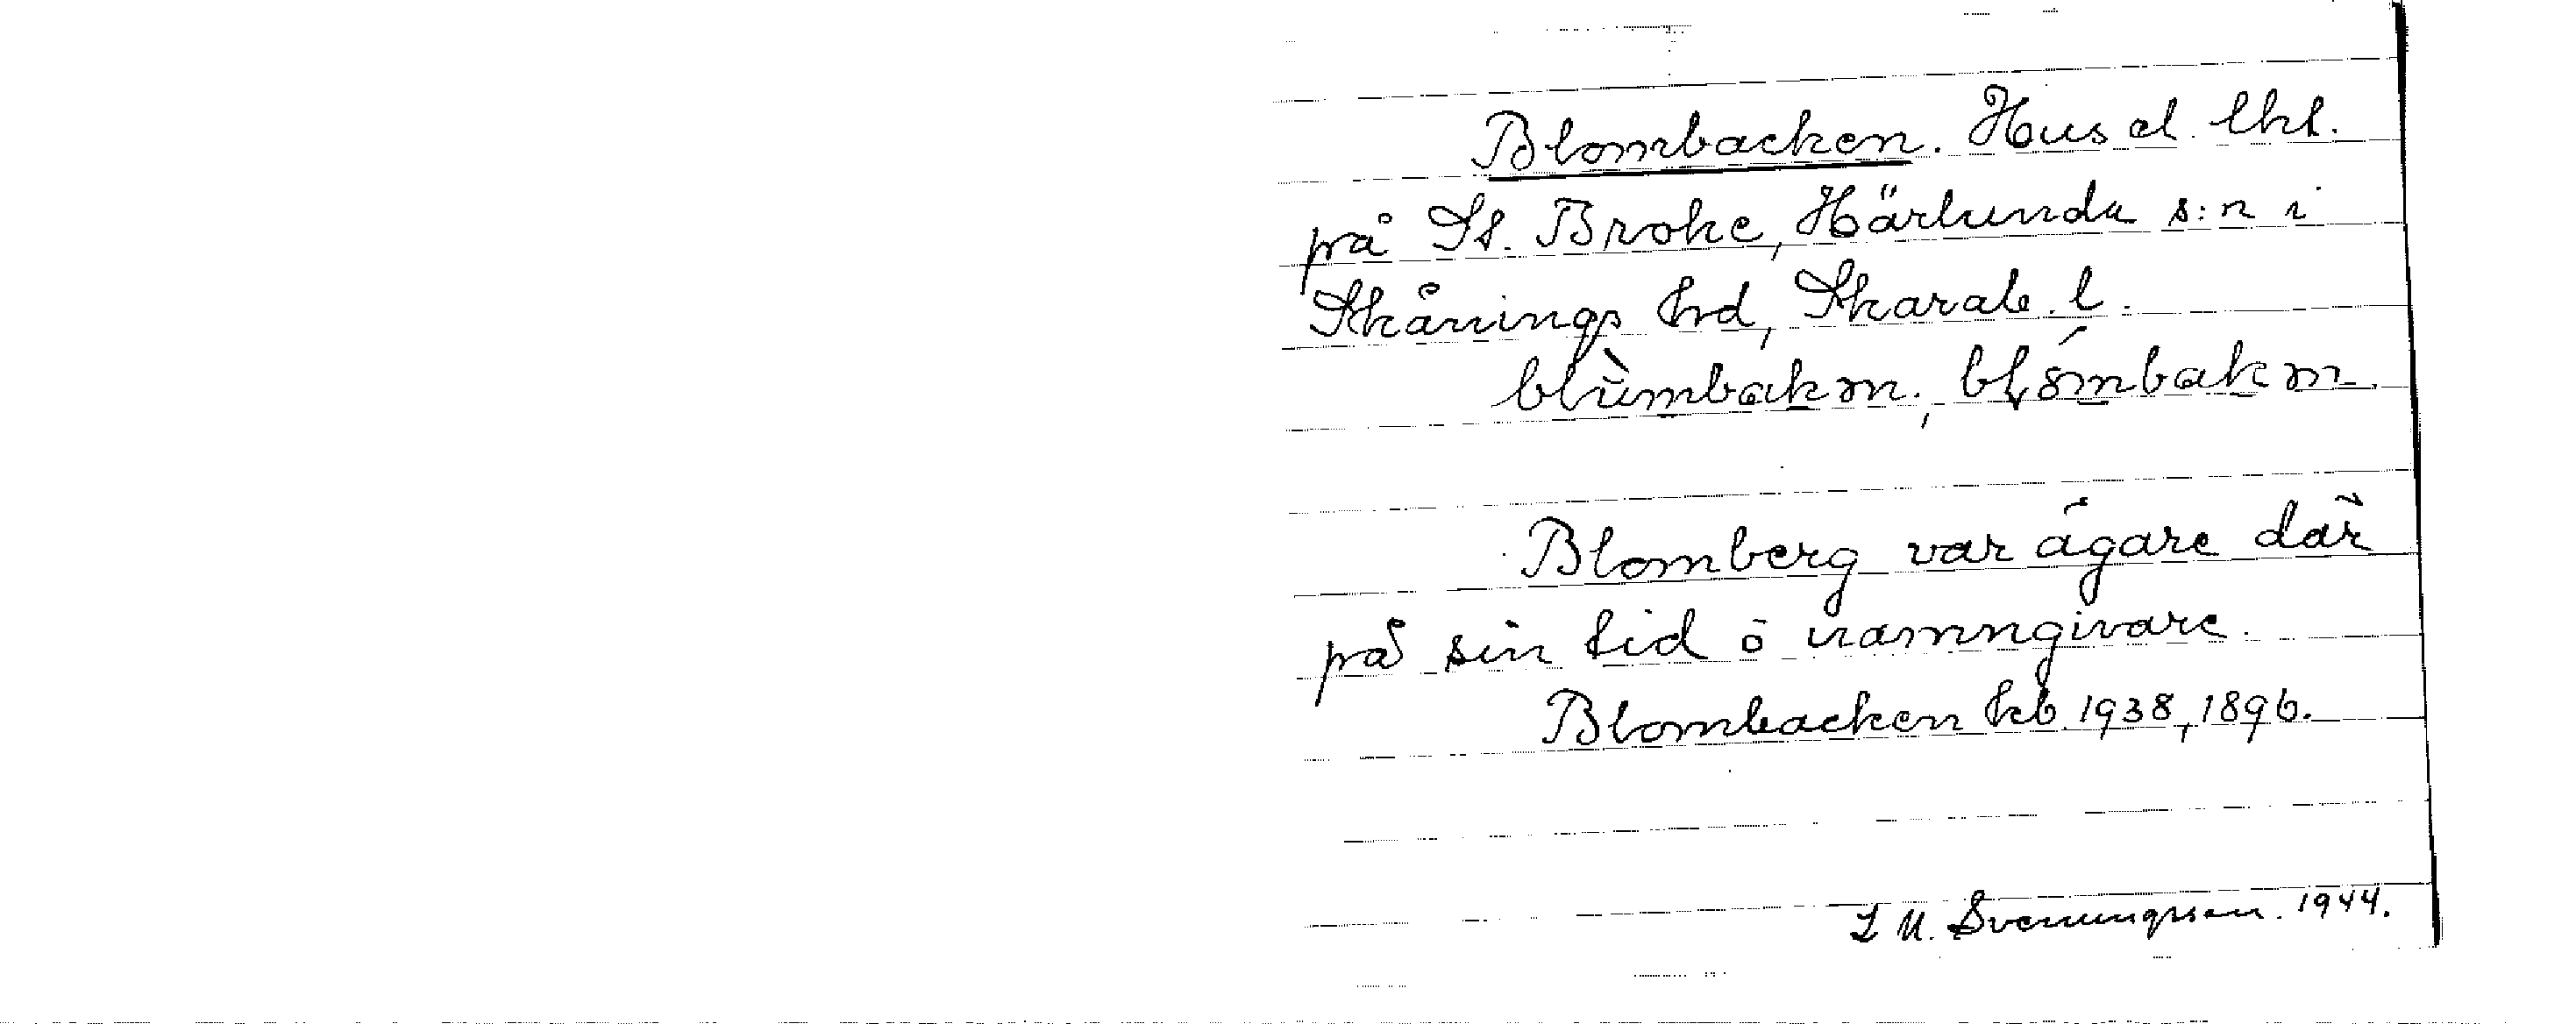 Blombacken. Hus el. lht.
på St. Broke, Härlunda s:n i
Skånings hd, Skarab. l.
Blomberg var ägare där
på sin tid o namngivare.
Blombacken kb 1938, 1896.
1944.